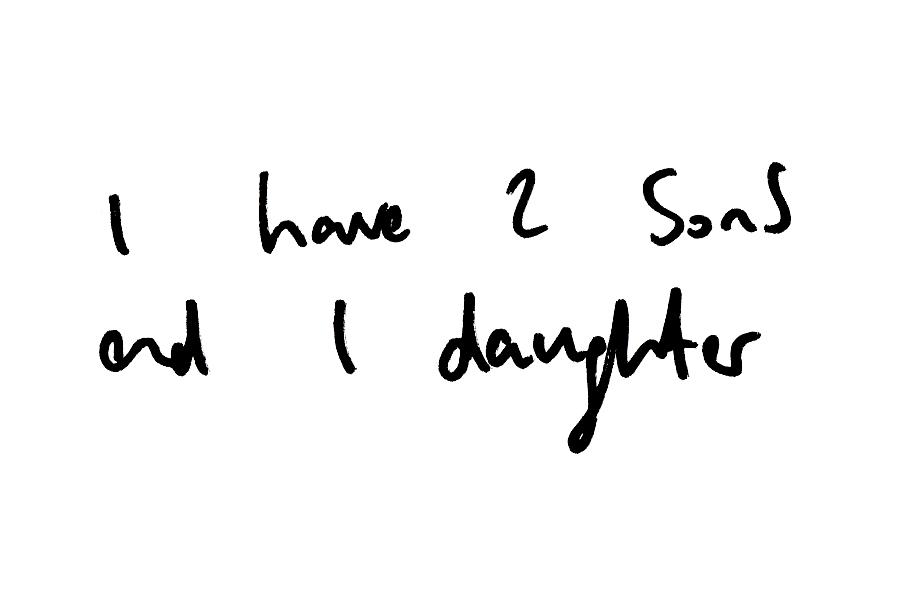 I have 2 sons
and 1 daughter